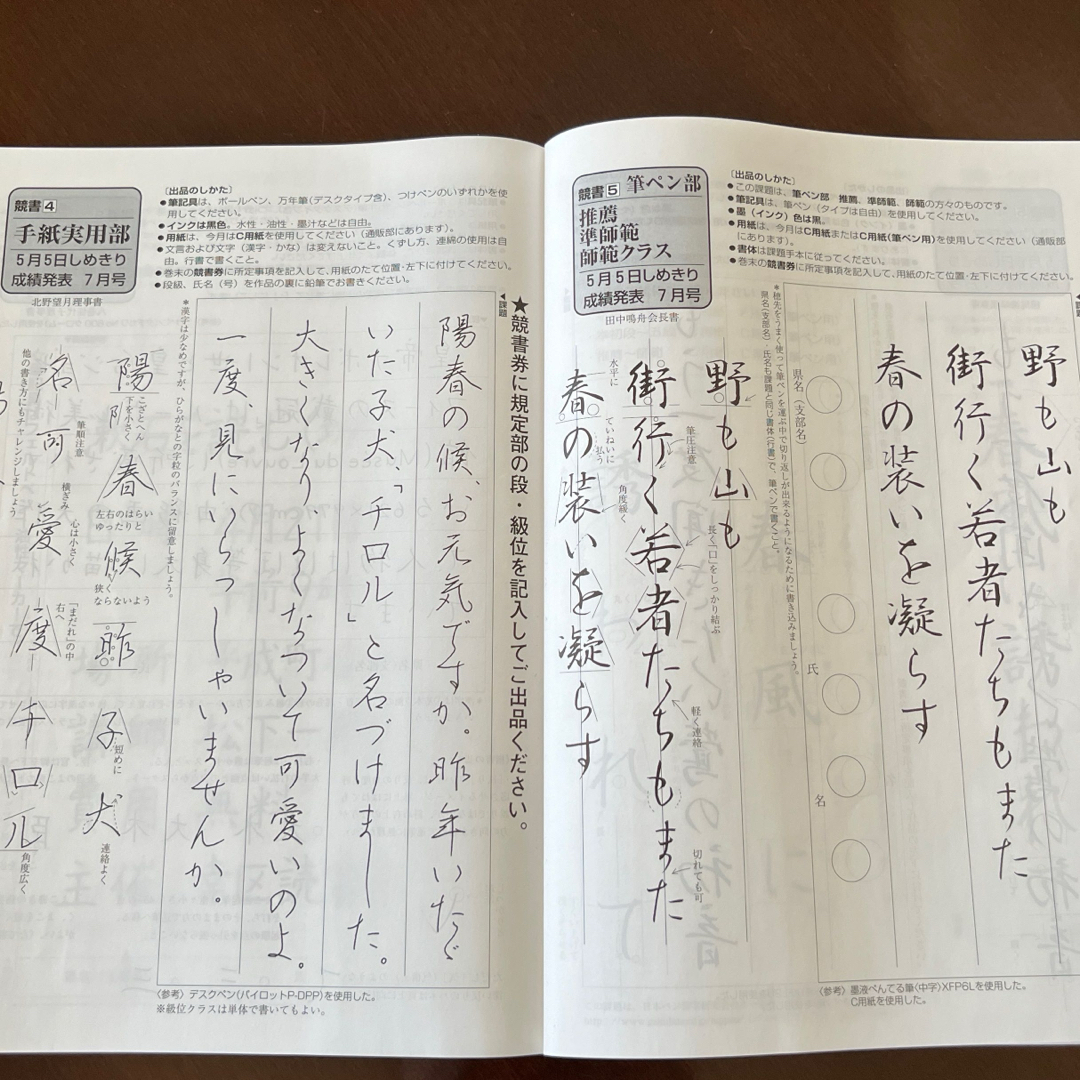 競書4
手紙実用部
5月5日しめきり
成績発表 7月号
北野望月理事書
〔出品のしかた〕
●筆記具は、ボールペン、万年筆(デスクタイプ含)、つけペンのいずれかを使
用してください。
●インクは黒色。水性・油性・墨汁などは自由。
●用紙は、今月はC用紙を使用してください(通販部にあります)。
●文言および文字(漢字・かな)は変えないこと。くずし方、連綿の使用は自
由。行書で書くこと。
●巻末の競書券に所定事項を記入して、用紙のたて位置・左下に付けてください。
●段級、氏名(号)を作品の裏に鉛筆でお書きください。
◀課題
★競書券に規定部の段・級位を記入してご出品ください。
陽春の候、お元気ですか。昨年いただ
いた子犬、「チロル」と名づけました。
大きくなり、よくなついて可愛いのよ。
一度、見にいらっしゃいませんか。
*漢字は少なめですが、ひらがなとの字粒のバランスに留意しましょう。
陽
こざとへん
下を小さく
春
左右のはらい
ゆったりと
候
狭く
ならないよう
昨
子
短めに
犬
連絡よく
名
筆順注意
可
愛
横ぎみ
心は小さく
度
「まだれ」の中
右へ
チロル
角度広く
他の書き方にもチャレンジしましょう
〈参考〉デスクペン(パイロットP-DPP)を使用した。
※級位クラスは単体で書いてもよい。
競書5 筆ペン部
推薦
準師範
師範クラス
5月5日しめきり
成績発表 7月号
田中鳴舟会長書
〔出品のしかた〕
●この課題は、筆ペン部 推薦、準師範、師範の方々のものです。
●筆記具は、筆ペン(タイプは自由)を使用してください。
●墨(インク)色は黒。
●用紙は、今月はC用紙またはC用紙(筆ペン用)を使用してください(通販部
にあります)。
●書体は課題手本に従ってください。
●巻末の競書券に所定事項を記入して、用紙のたて位置・左下に付けてください。
◀課題
野も山も
街行く若者たちもまた
春の装いを凝らす
県名(支部名)
氏
名
*穂先をうまく使って筆ペンを運ぶ中で切り返しが出来るようになるために書き込みましょう。
県名(支部名)・氏名も課題と同じ書体(行書)で、筆ペンで書くこと。
野も山も
街行く若者たちもまた
筆圧注意
長く「口」をしっかり結ぶ
軽く連絡
切れても可
春の装いを凝らす
水平に
ていねいに
払う
角度緩く
〈参考〉墨液ぺんてる筆〈中字〉XFP6Lを使用した。
C用紙を使用した。